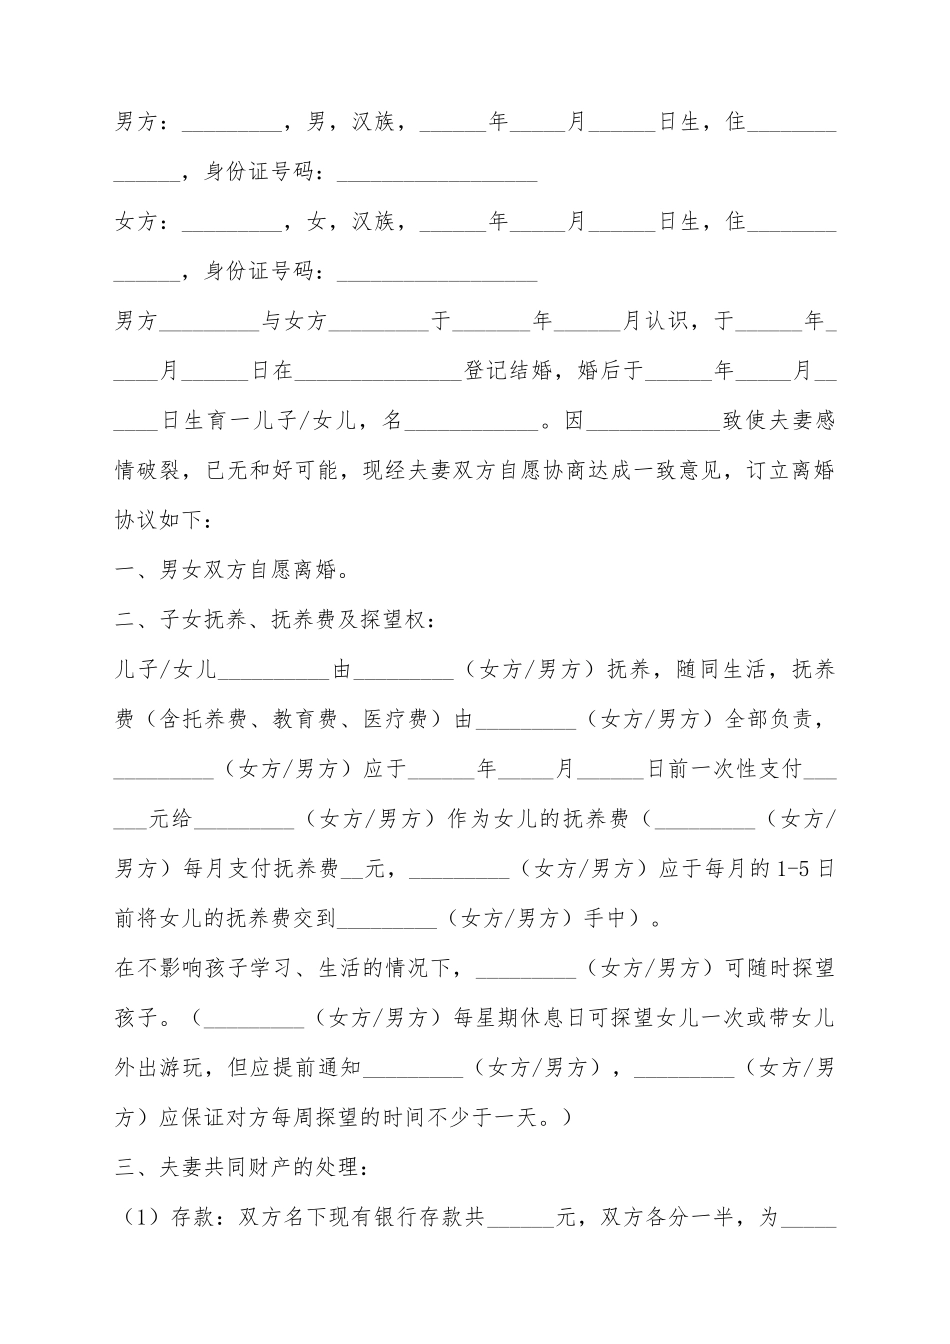 男方：_________，男，汉族，______年_____月______日生，住________
______，身份证号码：__________________
女方：_________，女，汉族，______年_____月______日生，住________
______，身份证号码：__________________
男方_________与女方_________于_______年______月认识，于______年_
____月______日在_______________登记结婚，婚后于______年_____月__
____日生育一儿子/女儿，名____________。因____________致使夫妻感
情破裂，已无和好可能，现经夫妻双方自愿协商达成一致意见，订立离婚
协议如下：
一、男女双方自愿离婚。
二、子女抚养、抚养费及探望权：
儿子/女儿__________由_________（女方/男方）抚养，随同生活，抚养
费（含托养费、教育费、医疗费）由_________（女方/男方）全部负责，
_________（女方/男方）应于______年_____月______日前一次性支付___
___元给_________（女方/男方）作为女儿的抚养费（_________（女方/
男方）每月支付抚养费__元，_________（女方/男方）应于每月的1-5日
前将女儿的抚养费交到_________（女方/男方）手中）。
在不影响孩子学习、生活的情况下，_________（女方/男方）可随时探望
孩子。（_________（女方/男方）每星期休息日可探望女儿一次或带女儿
外出游玩，但应提前通知_________（女方/男方），_________（女方/男
方）应保证对方每周探望的时间不少于一天。）
三、夫妻共同财产的处理：
（1）存款：双方名下现有银行存款共______元，双方各分一半，为_____